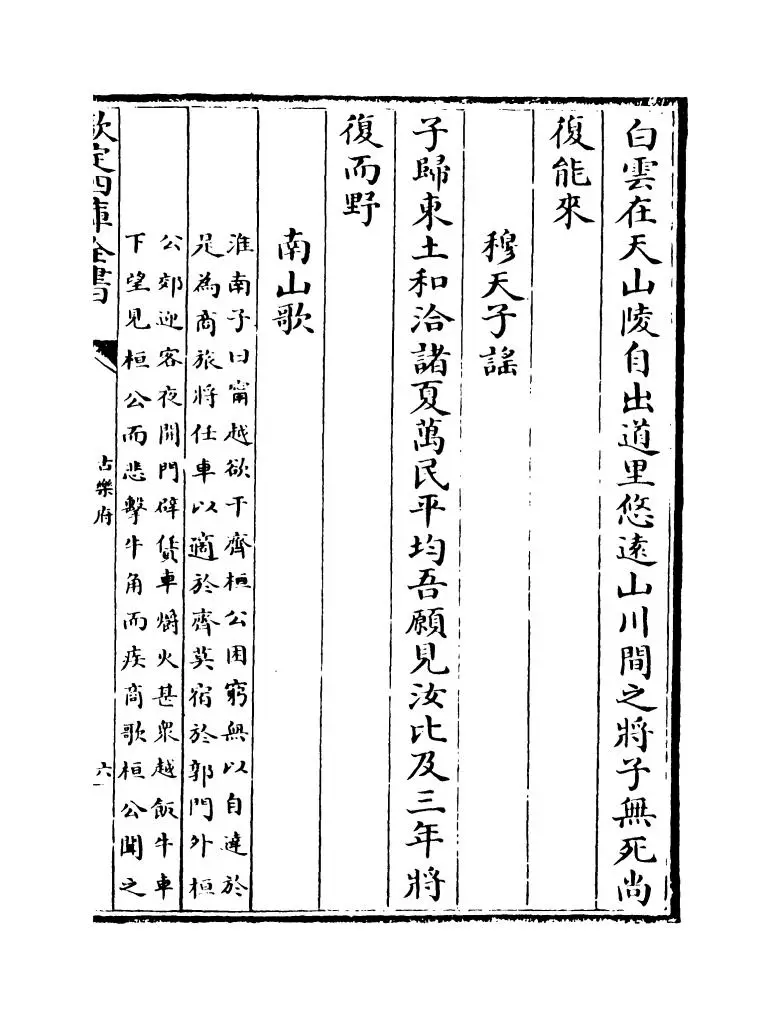 白雲在天山陵自出道里悠遠山川間之將子無死尚
復能來
穆天子謡
予歸東土和洽諸夏萬民平均吾願見汝比及三年將
復而野
南山歌
淮南子曰甯越欲干齊桓公困窮無以自達於
是為商旅將任車以適於齊莫宿於郭門外桓
公郊迎客夜開門辟貨車爝火甚衆越飯牛車
下望見桓公而悲擊牛角而疾商歌桓公聞之
欽定四庫全書
古樂府
六